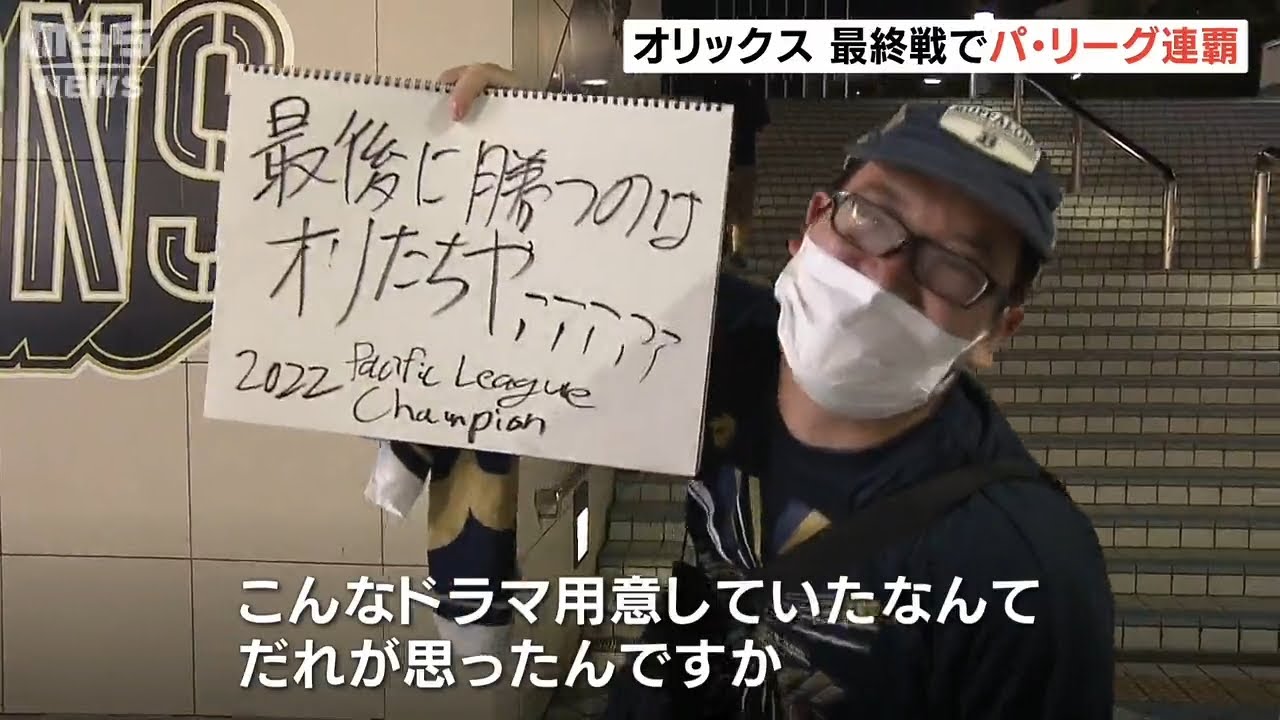 MBS
NEWS
オリックス 最終戦でパ・リーグ連覇
NS
BUFFALOES
最後に勝つのは
オリたちや,,,,,,
2022 Pacific League
Champion
こんなドラマ用意していたなんて
だれが思ったんですか